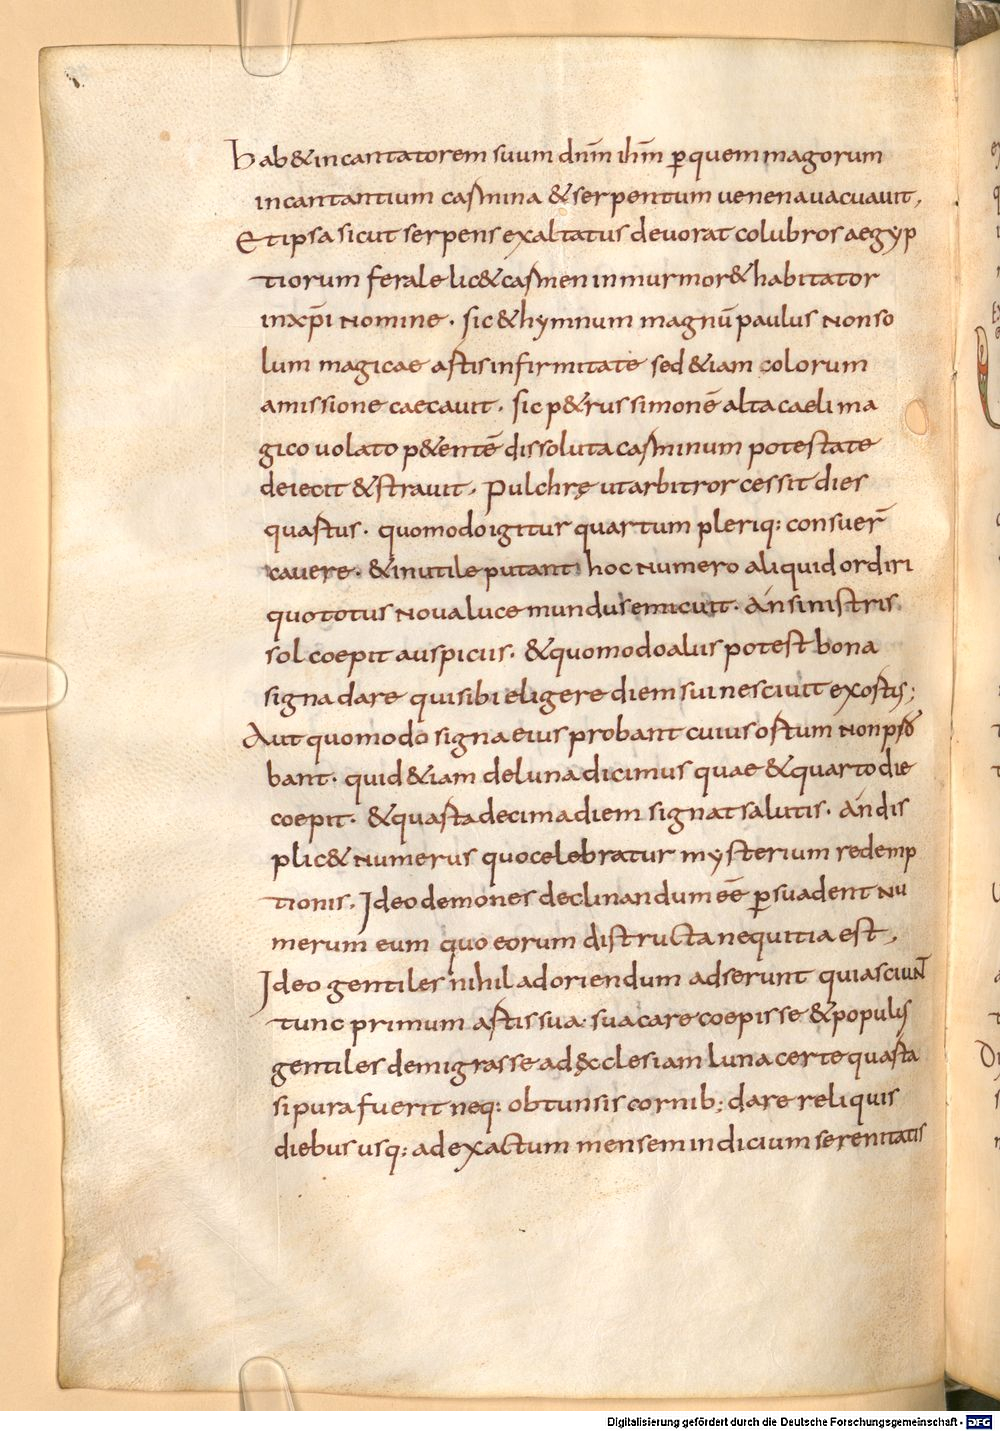 hab&incantatorem suum dnm̄ ihm̄ ꝑquem magorum
incantantium carmina &serpentum uenena uacuauit,
Et ipsa sicut serpens exaltatus deuorat colubros aegyp
tiorum ferale lic&carmen inmurmor& habitator
inxp̄i nomine. sic &hymnum magnū paulus nonso
lum magicae artis infirmitate sed &iam colorum
amissione caecauit. sic p&rus simonē alta caeli ma
gico uolato p&entē dissoluta carminum potestate
deiecit &strauit. Pulchrę utarbitror cessit dies
quartus. quomodo igitur quartum pleriq: consuer̄
cauere. &inutile putant hoc numero aliquid ordiri
quo totus noua luce mundus emicuit. An sinistris
sol coepit auspiciis. &quomodo alius potest bona
signa dare qui sibi eligere diem sui nesciuit exortis;
Aut quomodo signa eius probant cuius ortum non pro
bant. quid &iam de luna dicimus quae &quarto die
coepit. &quarta decima diem signat salutis. An dis
plic& numerus quo celebratur mysterium redemp
tionis. Ideo demones declinandum eē ꝑsuadent nu
merum eum quo eorum distructa nequitia est,
Ideo gentiles nihil adoriendum adserunt quia sciunt
tunc primum artis sua. suacare coepisse &populis
gentiles demigrasse ad ęcclesiam luna certe quarta
si pura fuerit neq: obtunsis cornib; dare reliquis
diebus usq: ad exactum mensem indicium serenitatis
Digitalisierung gefördert durch die Deutsche Forschungsgemeinschaft - DFG